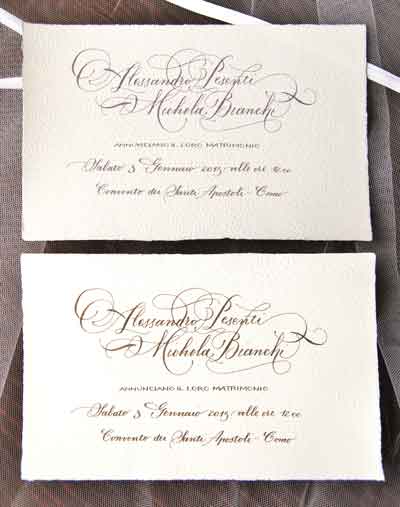 Alessandro Pesenti
Michela Bianchi
ANNUNCIANO IL LORO MATRIMONIO
Sabato 5 Gennaro 2013 alle ore 12.00
Convento dei Santi Apostoli - Como
Alessandro Pesenti
Michela Bianchi
ANNUNCIANO IL LORO MATRIMONIO
Sabato 5 Gennaro 2013 alle ore 12.00
Convento dei Santi Apostoli - Como